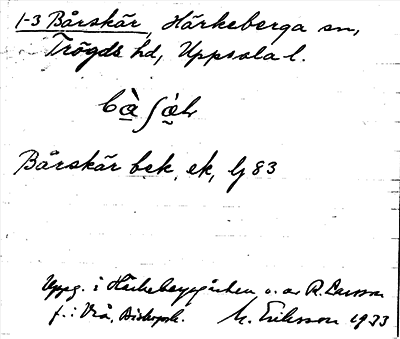 1-3 Bårskär, Härkeberga sn,
Trögds hd, Uppsala l.
bà̱ʃà̱r
Bårskär bek, ek, lj 83
Uppg. i Härkebergagården o. av R. Larsson
f. i Vrå, Biskopsk. M. Eriksson 1933